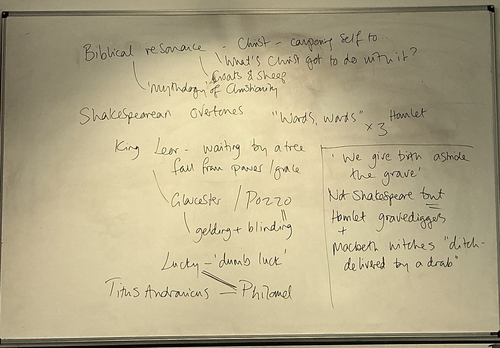 Biblical resonance - Christ - comparing self to...
'What's Christ got to do with it?'
Goats & Sheep
'mythology' of Christianity
Shakespearean overtones "Words, words" x 3 Hamlet
King Lear - waiting by a tree
fall from power/grace
Gloucester / Pozzo
gelding + blinding
Lucky - 'dumb luck'
Titus Andronicus — Philomel
'We give birth astride
the grave'
Not Shakespeare but
Hamlet gravediggers
+
Macbeth witches "ditch-
delivered by a drab"